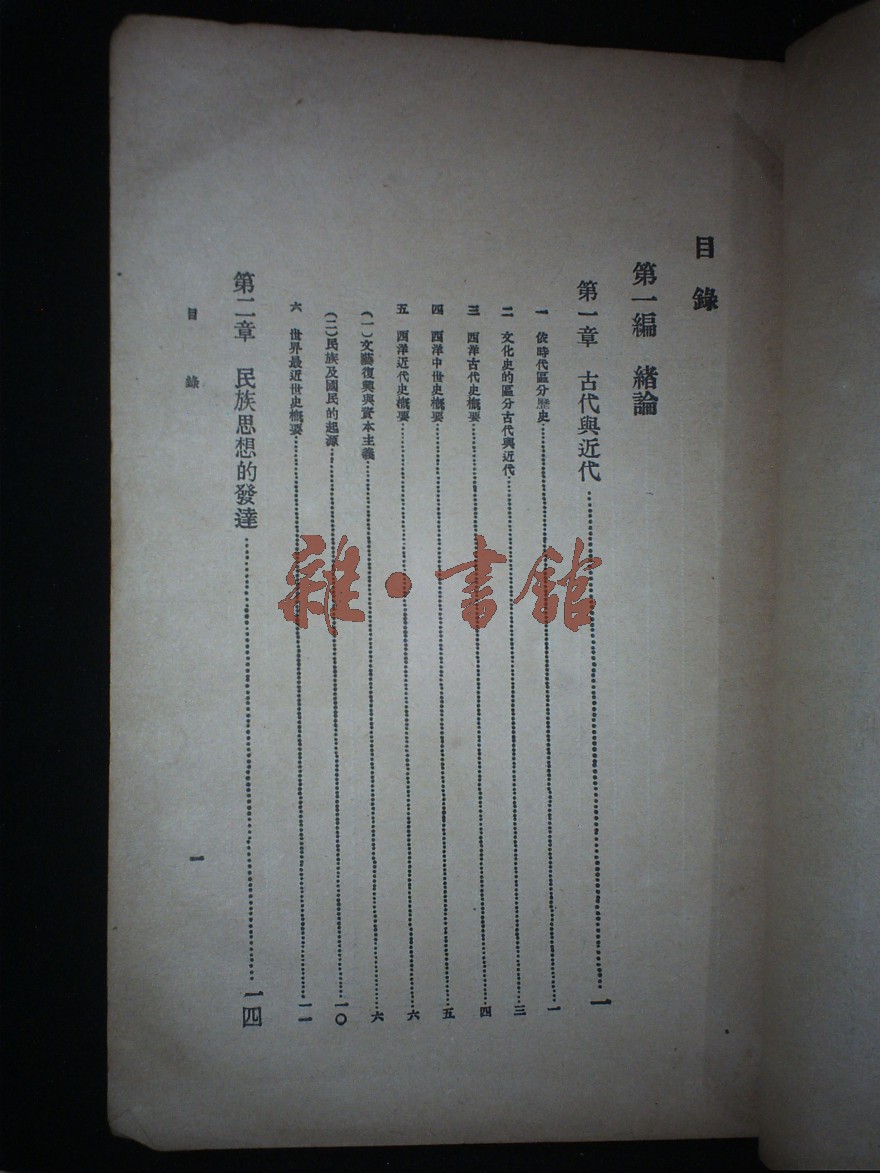 目錄
第一編 緒論
第一章 古代與近代……一
一 依時代區分歷史……一
二 文化史的區分古代與近代……三
三 西洋古代史概要……四
四 西洋中世史概要……五
五 西洋近代史概要……六
(一)文藝復興與資本主義……六
(二)民族及國民的起源……一〇
六 世界最近世史概要……一一
第二章 民族思想的發達……一四
目錄 一
雜·書館